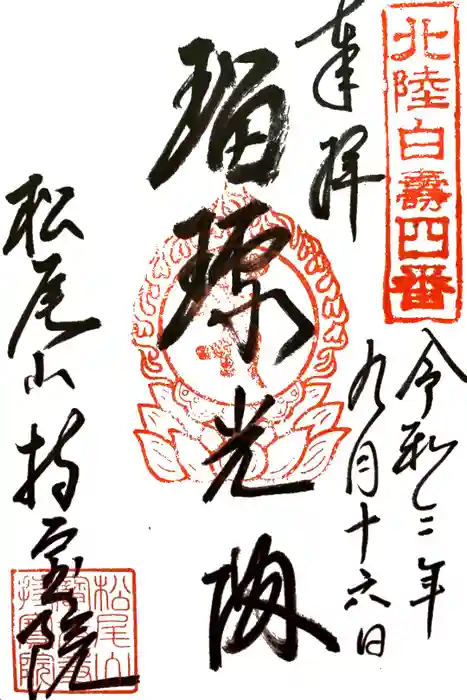 北陸白壽四番
奉拝
令和二年
九月十六日
瑠璃光殿
松尾山持宝院
松尾山
持寳院